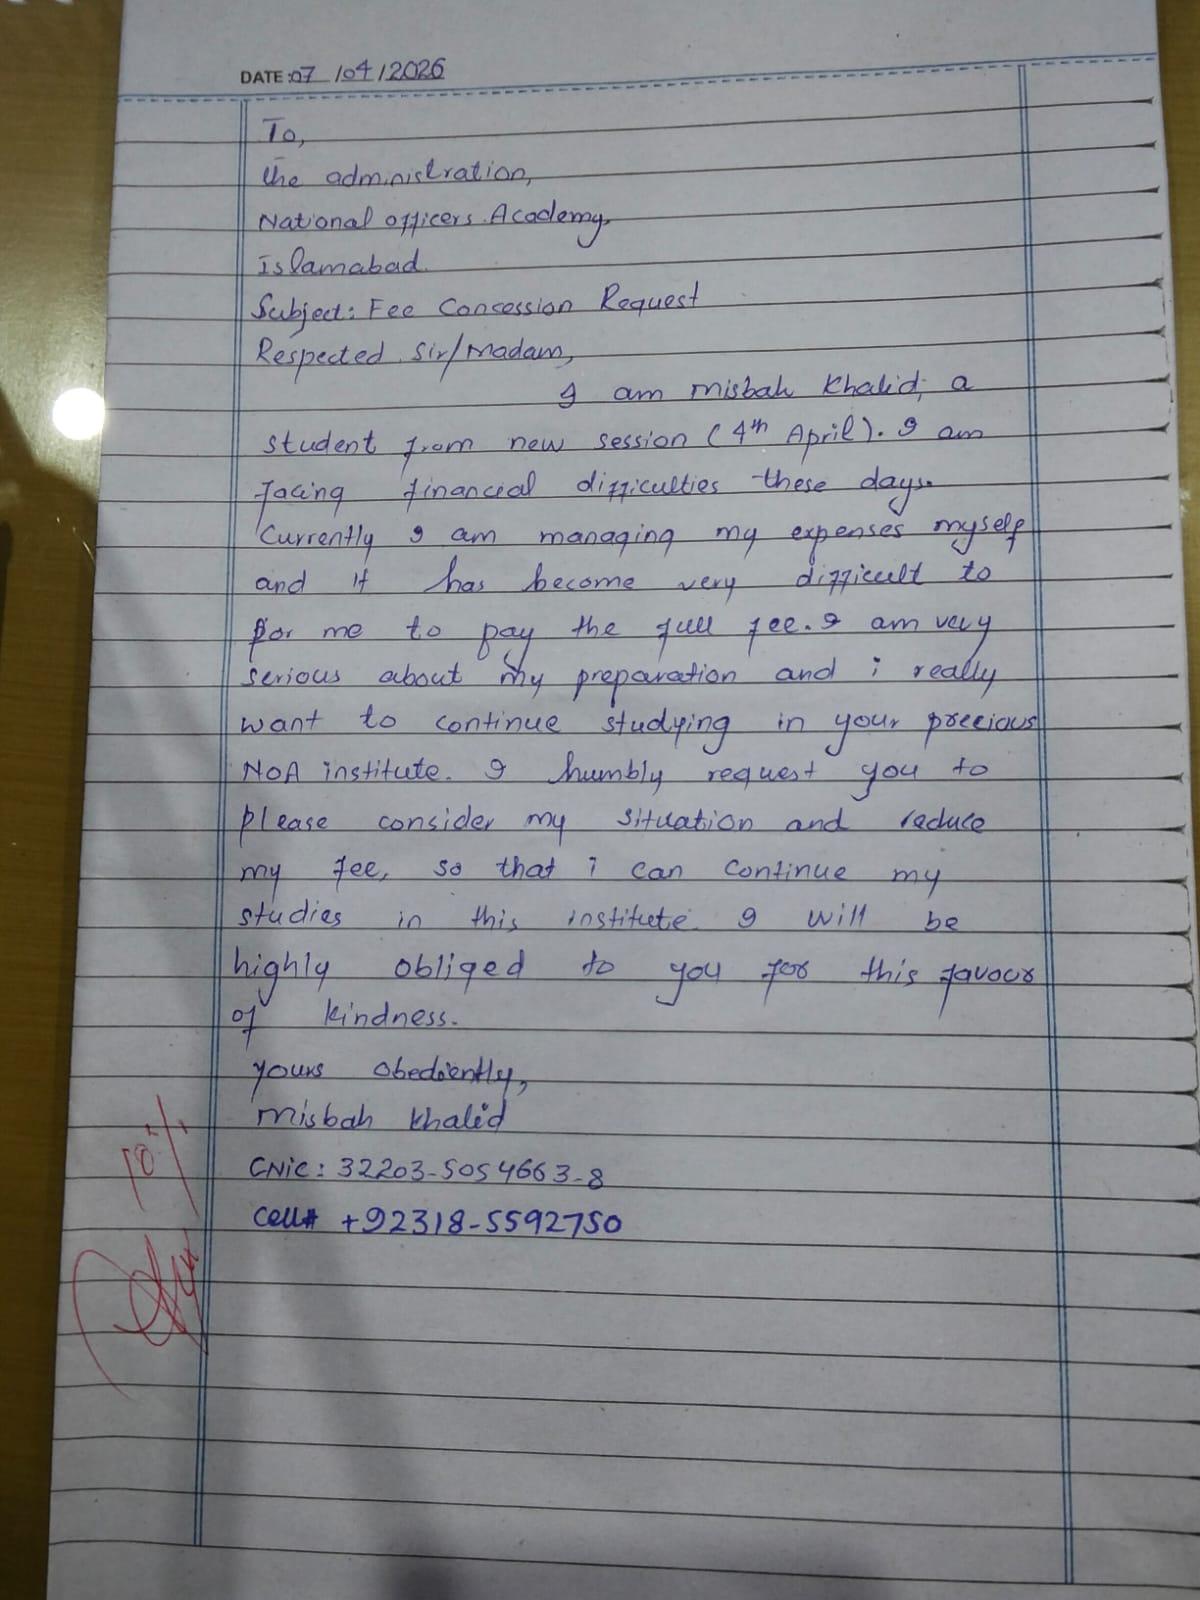 DATE: 07 / 04 / 2026
To,
the administration,
National officers Academy,
islamabad.
Subject: Fee Concession Request
Respected Sir/Madam,
I am misbah Khalid, a
student from new session (4th April). I am
facing financial difficulties these days.
Currently I am managing my expenses myself
and it has become very difficult to
for me to pay the full fee. I am very
serious about my preparation and i really
want to continue studying in your precious
NOA institute. I humbly request you to
please consider my situation and reduce
my fee, so that i can continue my
studies in this institute. I will be
highly obliged to you for this favour
of kindness.
yours obediently,
misbah khalid
CNIC: 32203-5054663-8
cell# +92318-5592750
10%